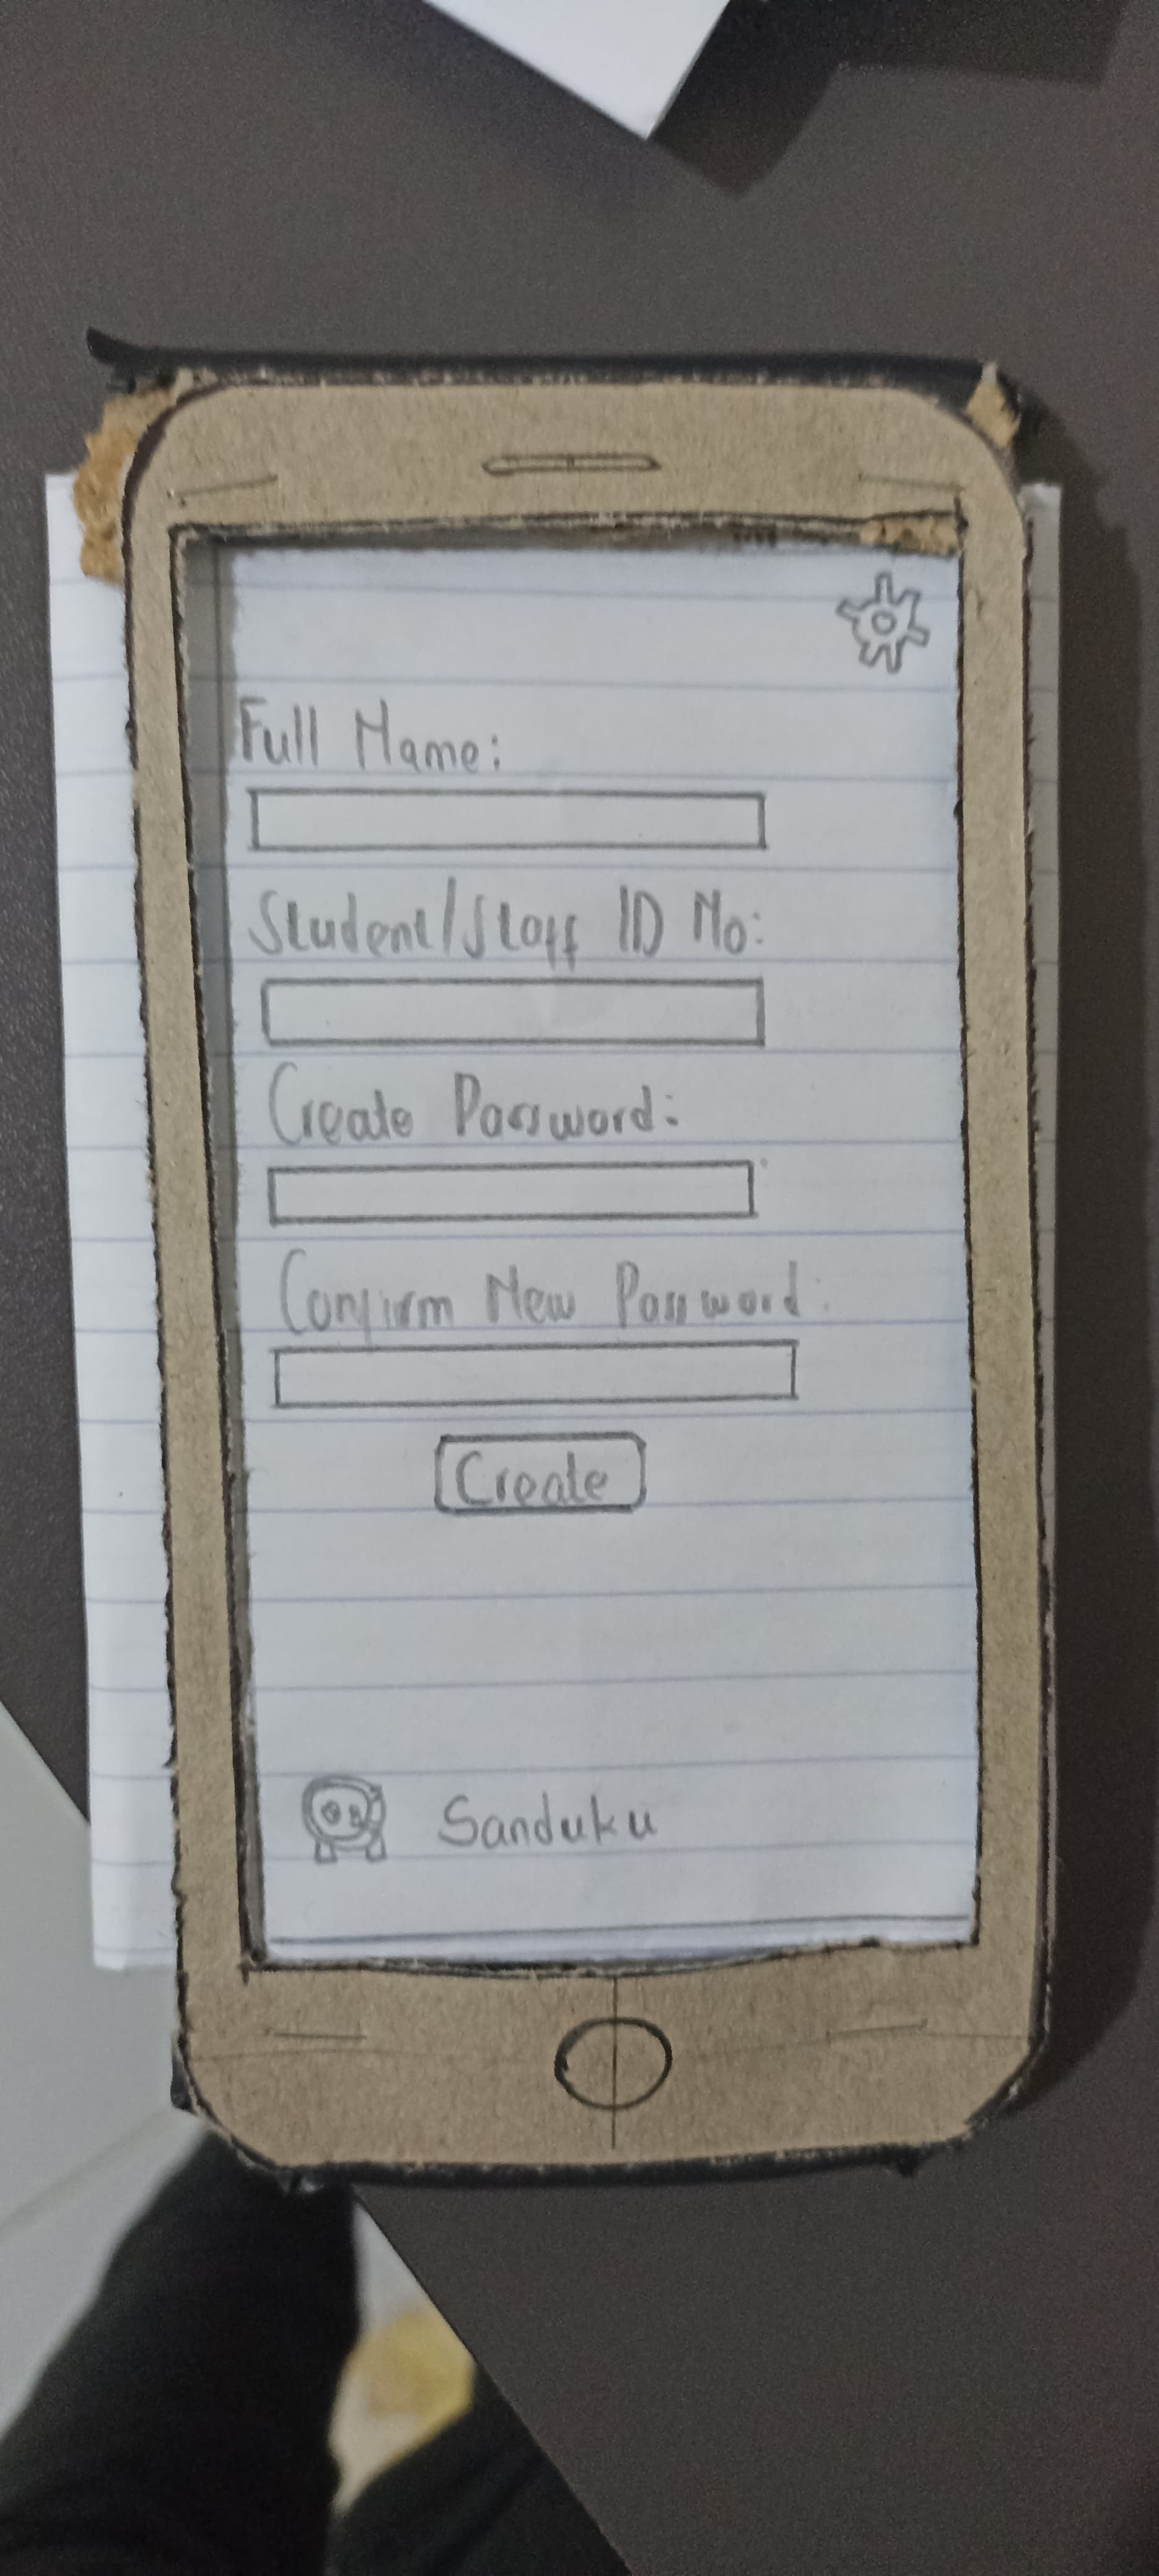 Full Name:
Student/Staff ID No:
Create Password:
Confirm New Password:
Create
Sanduku